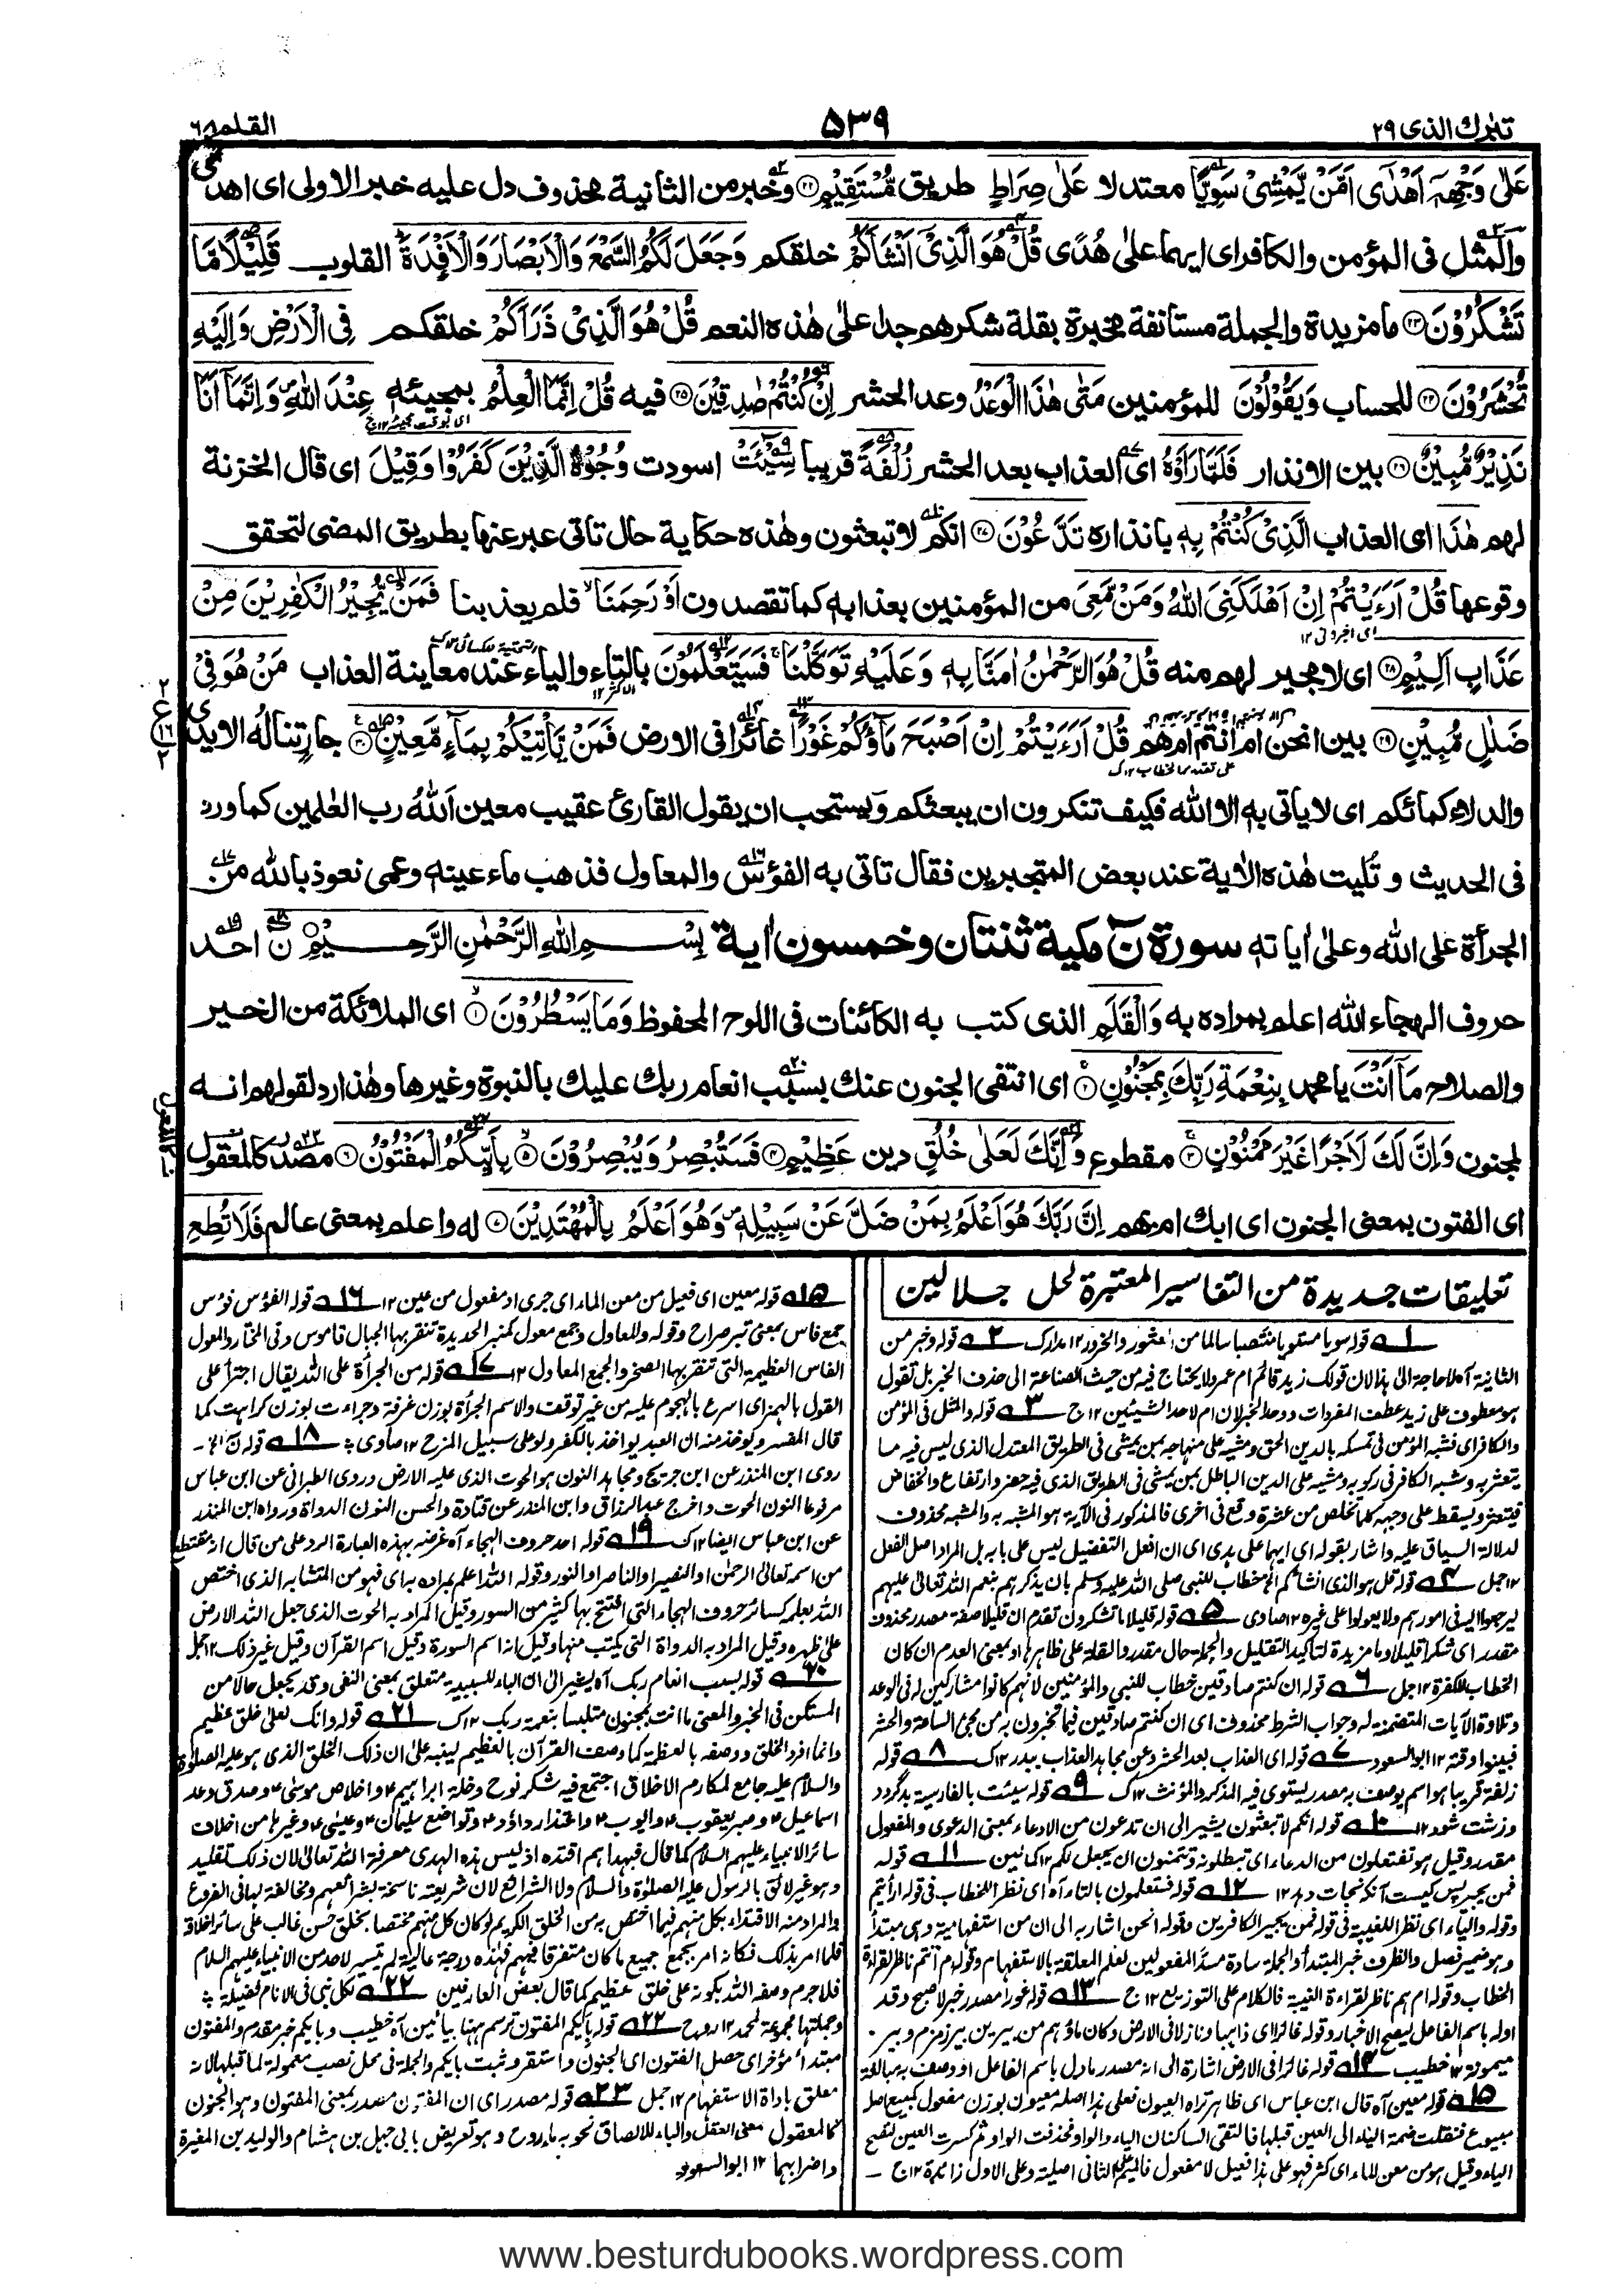 تبٰرك الذی ٢٩
۵۳۹
القلم ٦٨
عَلٰی وَجْهِهٖۤ اَهْدٰۤی اَمَّنْ یَّمْشِیْ سَوِیًّا معتدلا عَلٰی صِرَاطٍ طریق مُّسْتَقِیْمٍ ۲۲ وخبر من الثانیة محذوف دل علیه خبر الاولی ای اهدی
والمثل فی المؤمن والکافر ای ایهما علیٰ هُدًی قُلْ هُوَ الَّذِیْۤ اَنْشَاَكُمْ خلقکم وَجَعَلَ لَكُمُ السَّمْعَ وَالْاَبْصَارَ وَالْاَفْـِٕدَةَ القلوب قَلِیْلًا مَّا
تَشْكُرُوْنَ ۲۳ ما مزیدة والجملة مستانفة مخبرة بقلة شکرهم جدا علیٰ هٰذه النعم قُلْ هُوَ الَّذِیْ ذَرَاَكُمْ خلقکم فِی الْاَرْضِ وَاِلَیْهِ
تُحْشَرُوْنَ ۲۴ للحساب وَیَقُوْلُوْنَ للمؤمنین مَتٰی هٰذَا الْوَعْدُ وعد الحشر اِنْ كُنْتُمْ صٰدِقِیْنَ ۲۵ فیه قُلْ اِنَّمَا الْعِلْمُ بمجیئه عِنْدَ اللّٰهِ وَاِنَّمَاۤ اَنَا
نَذِیْرٌ مُّبِیْنٌ ۲۶ بین الانذار فَلَمَّا رَاَوْهُ ای العذاب بعد الحشر زُلْفَةً قریبا سِیْٓـَٔتْ اسودت وُجُوْهُ الَّذِیْنَ كَفَرُوْا وَقِیْلَ ای قال الخزنة
لهم هٰذَا ای العذاب الَّذِیْ كُنْتُمْ بِهٖ بانذاره تَدَّعُوْنَ ۲۷ انکم لا تبعثون وهٰذه حکایة حال تاتی عبر عنها بطریق المضی لتحقق
وقوعها قُلْ اَرَءَیْتُمْ اِنْ اَهْلَكَنِیَ اللّٰهُ وَمَنْ مَّعِیَ من المؤمنین بعذابه کما تقصدون اَوْ رَحِمَنَا فلم یعذبنا فَمَنْ یُّجِیْرُ الْكٰفِرِیْنَ مِنْ
عَذَابٍ اَلِیْمٍ ۲۸ ای لا مجیر لهم منه قُلْ هُوَ الرَّحْمٰنُ اٰمَنَّا بِهٖ وَعَلَیْهِ تَوَكَّلْنَا فَسَتَعْلَمُوْنَ بالتاء والیاء عند معاینة العذاب مَنْ هُوَ فِیْ
ضَلٰلٍ مُّبِیْنٍ ۲۹ بین انحن ام انتم ام هم قُلْ اَرَءَیْتُمْ اِنْ اَصْبَحَ مَآؤُكُمْ غَوْرًا غائرا فی الارض فَمَنْ یَّاْتِیْكُمْ بِمَآءٍ مَّعِیْنٍ ۳۰ جار تناله الایدی
والدلاء کمائکم ای لا یاتی به الا الله فکیف تنکرون ان یبعثکم ویستحب ان یقول القارئ عقیب معین اَللّٰهُ رب العٰلمین کما ورد
فی الحدیث و تُلیت هٰذه الاٰیة عند بعض المتجبرین فقال تاتی به الفؤس والمعاول فذهب ماء عینه وعمی نعوذ بالله من
الجرأة علی الله وعلیٰ اٰیاته سورة نٓ مکیة ثنتان وخمسون اٰیة بِسْمِ اللّٰهِ الرَّحْمٰنِ الرَّحِیْمِ نٓ احد
حروف الهجاء الله اعلم بمراده به وَالْقَلَمِ الذی کتب به الکائنات فی اللوح المحفوظ وَمَا یَسْطُرُوْنَ ۱ ای الملائکة من الخیر
والصلاح مَاۤ اَنْتَ یا محمد بِنِعْمَةِ رَبِّكَ بِمَجْنُوْنٍ ۲ ای انتفی الجنون عنك بسبب انعام ربك علیك بالنبوة وغیرها وهٰذا رد لقولهم انه
لمجنون وَاِنَّ لَكَ لَاَجْرًا غَیْرَ مَمْنُوْنٍ ۳ مقطوع وَاِنَّكَ لَعَلٰی خُلُقٍ دین عَظِیْمٍ ۴ فَسَتُبْصِرُ وَیُبْصِرُوْنَ ۵ بِاَیِّكُمُ الْمَفْتُوْنُ ۶ مصدر کالمعقول
ای الفتون بمعنی الجنون ای ابك ام بهم اِنَّ رَبَّكَ هُوَ اَعْلَمُ بِمَنْ ضَلَّ عَنْ سَبِیْلِهٖ وَهُوَ اَعْلَمُ بِالْمُهْتَدِیْنَ ۷ له واعلم بمعنی عالم فَلَا تُطِعِ
تعلیقات جدیدة من التفاسیر المعتبرة لحل جلالین
۱ قوله سویا مستویا منتصبا سالما من العثور والخرور ۱۲ مدارک ۲ قوله وخبر من
الثانیة آه لا حاجة الی هذا لان قولک زید قائم ام عمرو لا یحتاج فیه من حیث الصناعة الی حذف الخبر بل تقول
هو معطوف علی زید عطف المفردات ووحد الخبر لان ام لاحد الشیئین ۱۲ ج ۳ قوله والمثل فی المؤمن
والکافر ای شبه المؤمن فی تمسکه بالدین الحق ومشیه علی منهاجه بمن یمشی فی الطریق المعتدل الذی لیس فیه ما
یتعثر به وشبه الکافر فی رکوبه ومشیه علی الدین الباطل بمن یمشی فی الطریق الذی فیه حفر وارتفاع وانخفاض
فیتعثر ویسقط علی وجهه کلما تخلص من عثرة وقع فی اخری فالمذکور فی الآیة هو المشبه به والمشبه محذوف
لدلالة السیاق علیه واشار بقوله ای ایهما علی هدی ای ان افعل التفضیل لیس علی بابه بل المراد اصل الفعل
۱۲ جمل ۴ قوله قل هو الذی انشاکم الخ خطاب للنبی صلی الله علیه وسلم بان یذکرهم بنعم الله تعالی علیهم
لیرجعوا الیه فی امورهم ولا یعولوا علی غیره ۱۲ صاوی ۵ قوله قلیلا ما تشکرون تقدم ان قلیلا صفة مصدر محذوف
مقدر ای شکرا قلیلا وما مزیدة لتاکید التقلیل والجملة حال مقدر والقلة علی ظاهرها او بمعنی العدم ان کان
الخطاب للکفرة ۱۲ جمل ۶ قوله ان کنتم صادقین خطاب للنبی والمؤمنین لانهم کانوا مشارکین له فی الوعد
وتلاوة الآیات المتضمنة له وجواب الشرط محذوف ای ان کنتم صادقین فیما تخبرون به من مجئ الساعة والحشر
فبینوا وقته ۱۲ ابو السعود ۷ قوله ای العذاب بعد الحشر وعن مجاهد العذاب ببدر ۱۲ ک ۸ قوله
زلفة قریبا هو اسم یوصف به مصدر یستوی فیه المذکر والمؤنث ۱۲ ک ۹ قوله سیئت بالفارسیة بد گردد
وزشت شود ۱۲ ۱۰ قوله انکم لا تبعثون یشیر الی ان تدعون من الادعاء بمعنی الدعوی والمفعول
مقدر وقیل هو تفتعلون من الدعاء ای تطلبونه وتتمنون ان یجعل لکم ۱۲ کمالین ۱۱ قوله
فمن یجیر پس کیست آنکه نجات دهد ۱۲ ۱۲ قوله فستعلمون بالتاء آه ای نظرا للخطاب فی قوله ارأیتم
وقوله والیاء ای نظرا للغیبة فی قوله فمن یجیر الکافرین وقوله انحن اشار به الی ان من استفهامیة وهی مبتدأ
وهو ضمیر فصل والظرف خبر المبتدأ والجملة سادة مسد المفعولین لعلم المعلقة بالاستفهام وقوله ام انتم ناظر لقراءة
الخطاب وقوله ام هم ناظر لقراءة الغیبة فالکلام علی التوزیع ۱۲ ج ۱۳ قوله غورا مصدر خبر لاصبح وقد
اوله باسم الفاعل لیصح الاخبار وقوله غائرا ای ذاهبا ونازلا فی الارض وکان ماؤهم من بیرین بیر زمزم وبیر
میمونة ۱۲ خطیب ۱۴ قوله غائرا فی الارض اشارة الی انه مصدر مأول باسم الفاعل او وصف به مبالغة
۱۵ قوله معین آه قال ابن عباس ای ظاهر تراه العیون فعلی هذا اصله معیون بوزن مفعول کمبیع اصله
مبیوع فنقلت ضمة الیاء الی العین قبلها فالتقی الساکنان الیاء والواو فحذفت الواو ثم کسرت العین لتصح
الیاء وقیل هو من معن الماء ای کثر فهو علی هذا فعیل لا مفعول فالمیم علی الثانی اصلیة وعلی الاول زائدة ۱۲ ج
۱۵ قوله معین ای فعیل من معن الماء ای جری او مفعول من عین ۱۲ ۱۶ قوله الفؤس فؤس
جمع فاس بمعنی تبر صراح وقوله والمعاول وجمع معول کمنبر الحدیدة تنقر بها الجبال قاموس وفی المختار والمعول
الفاس العظیمة التی تنقر بها الصخر والجمع المعاول ۱۲ ۱۷ قوله من الجرأة علی الله یقال اجترأ علی
القول بالهمز ای اسرع بالهجوم علیه من غیر توقف والاسم الجرأة بوزن غرفة وجراءت بوزن کراهت کما
قال المفسر ویؤخذ منه ان العبد یواخذ بالکفر ولو علی سبیل المزح ۱۲ صاوی ۱۸ قوله نٓ الخ
روی ابن المنذر عن ابن جریج ومجاهد النون هو الحوت الذی علیه الارض وروی الطبرانی عن ابن عباس
مرفوعا النون الحوت واخرج عبد الرزاق وابن المنذر عن قتادة والحسن النون الدواة ورواه ابن المنذر
عن ابن عباس ایضا ۱۲ ک ۱۹ قوله احد حروف الهجاء آه غرضه بهذه العبارة الرد علی من قال انه مقتطع
من اسمه تعالی الرحمٰن او النصیر او الناصر او النور وقوله الله اعلم بمراده به ای فهو من المتشابه الذی اختص
الله بعلمه کسائر حروف الهجاء التی افتتح بها کثیر من السور وقیل المراد به الحوت الذی جعل الله الارض
علی ظهره وقیل المراد به الدواة التی یکتب منها وقیل انه اسم السورة وقیل اسم القرآن وقیل غیر ذلک ۱۲ جمل
۲۰ قوله بسبب انعام ربک آه یشیر الی ان الباء للسببیة متعلق بمعنی النفی وقد یجعل حالا من
المستکن فی الخبر والمعنی ما انت بمجنون متلبسا بنعمة ربک ۱۲ ک ۲۱ قوله وانک لعلی خلق عظیم
وانما افرد الخلق ووصفه بالعظمة کما وصف القرآن بالعظیم لینبه علی ان ذلک الخلق الذی هو علیه الصلوٰة
والسلام علیه جامع لمکارم الاخلاق اجتمع فیه شکر نوح وخلة ابراهیم واخلاص موسیٰ وصدق وعد
اسماعیل وصبر یعقوب وایوب واعتذار داؤد وتواضع سلیمان وعیسیٰ وغیرها من اخلاق
سائر الانبیاء علیهم السلام کما قال فبهداهم اقتده اذ لیس هذه الهدی معرفة الله تعالی لان ذلک تقلید
وهو غیر لائق بالرسول علیه الصلوٰة والسلام ولا الشرائع لان شریعته ناسخة بشرائعهم ومخالفة لها فی الفروع
والمراد منه الاقتداء بکل منهم فیما اختص به من الخلق الکریم لو کان کل منهم مختصا بخلق حسن غالب علی سائر اخلاقه
فلما امر بذلک فکانه امر بجمع جمیع ما کان متفرقا فیهم فهذه درجة عالیة لم تتیسر لاحد من الانبیاء علیهم السلام
فلا جرم وصفه الله بکونه علی خلق عظیم کما قال بعض العارفین ۲۲ لکل نبی فی الانام فضیلة
وجملتها مجموعة لمحمد ۱۲ روح ۲۲ قوله بایکم المفتون ترسم بهنا بیائین آه خطیب وبایکم خبر مقدم والمفتون
مبتدأ مؤخر ای حصل الفتون ای الجنون واستقر وثبت بایکم والجملة فی محل نصب معمولة لما قبلها لانه
معلق باداة الاستفهام ۱۲ جمل ۲۳ قوله مصدر ای ان المفتون مصدر بمعنی المفتون وهو الجنون
کالمعقول بمعنی العقل والباء للالصاق نحو به داء روح وهو تعریض بابی جهل بن هشام والولید بن المغیرة
واضرابهما ۱۲ ابو السعود
www.besturdubooks.wordpress.com